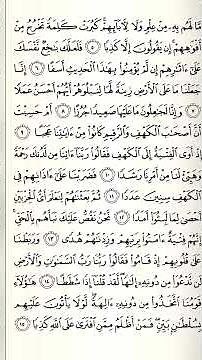 مَّا لَهُم بِهِۦ مِنْ عِلْمٍ وَلَا لِـَٔابَآئِهِمْ ۚ كَبُرَتْ كَلِمَةً تَخْرُجُ مِنْ
أَفْوَٰهِهِمْ ۚ إِن يَقُولُونَ إِلَّا كَذِبًا ۝٥ فَلَعَلَّكَ بَـٰخِعٌ نَّفْسَكَ
عَلَىٰٓ ءَاثَـٰرِهِمْ إِن لَّمْ يُؤْمِنُوا۟ بِهَـٰذَا ٱلْحَدِيثِ أَسَفًا ۝٦ إِنَّا
جَعَلْنَا مَا عَلَى ٱلْأَرْضِ زِينَةً لَّهَا لِنَبْلُوَهُمْ أَيُّهُمْ أَحْسَنُ عَمَلًا
۝٧ وَإِنَّا لَجَـٰعِلُونَ مَا عَلَيْهَا صَعِيدًا جُرُزًا ۝٨ أَمْ حَسِبْتَ
أَنَّ أَصْحَـٰبَ ٱلْكَهْفِ وَٱلرَّقِيمِ كَانُوا۟ مِنْ ءَايَـٰتِنَا عَجَبًا ۝٩
إِذْ أَوَى ٱلْفِتْيَةُ إِلَى ٱلْكَهْفِ فَقَالُوا۟ رَبَّنَآ ءَاتِنَا مِن لَّدُنكَ رَحْمَةً
وَهَيِّئْ لَنَا مِنْ أَمْرِنَا رَشَدًا ۝١٠ فَضَرَبْنَا عَلَىٰٓ ءَاذَانِهِمْ فِى
ٱلْكَهْفِ سِنِينَ عَدَدًا ۝١١ ثُمَّ بَعَثْنَـٰهُمْ لِنَعْلَمَ أَىُّ ٱلْحِزْبَيْنِ
أَحْصَىٰ لِمَا لَبِثُوٓا۟ أَمَدًا ۝١٢ نَّحْنُ نَقُصُّ عَلَيْكَ نَبَأَهُم بِٱلْحَقِّ ۚ
إِنَّهُمْ فِتْيَةٌ ءَامَنُوا۟ بِرَبِّهِمْ وَزِدْنَـٰهُمْ هُدًى ۝١٣ وَرَبَطْنَا
عَلَىٰ قُلُوبِهِمْ إِذْ قَامُوا۟ فَقَالُوا۟ رَبُّنَا رَبُّ ٱلسَّمَـٰوَٰتِ وَٱلْأَرْضِ
لَن نَّدْعُوَا۟ مِن دُونِهِۦٓ إِلَـٰهًا ۖ لَّقَدْ قُلْنَآ إِذًا شَطَطًا ۝١٤ هَـٰٓؤُلَآءِ
قَوْمُنَا ٱتَّخَذُوا۟ مِن دُونِهِۦٓ ءَالِهَةً ۖ لَّوْلَا يَأْتُونَ عَلَيْهِم
بِسُلْطَـٰنٍۭ بَيِّنٍ ۖ فَمَنْ أَظْلَمُ مِمَّنِ ٱفْتَرَىٰ عَلَى ٱللَّهِ كَذِبًا ۝١٥